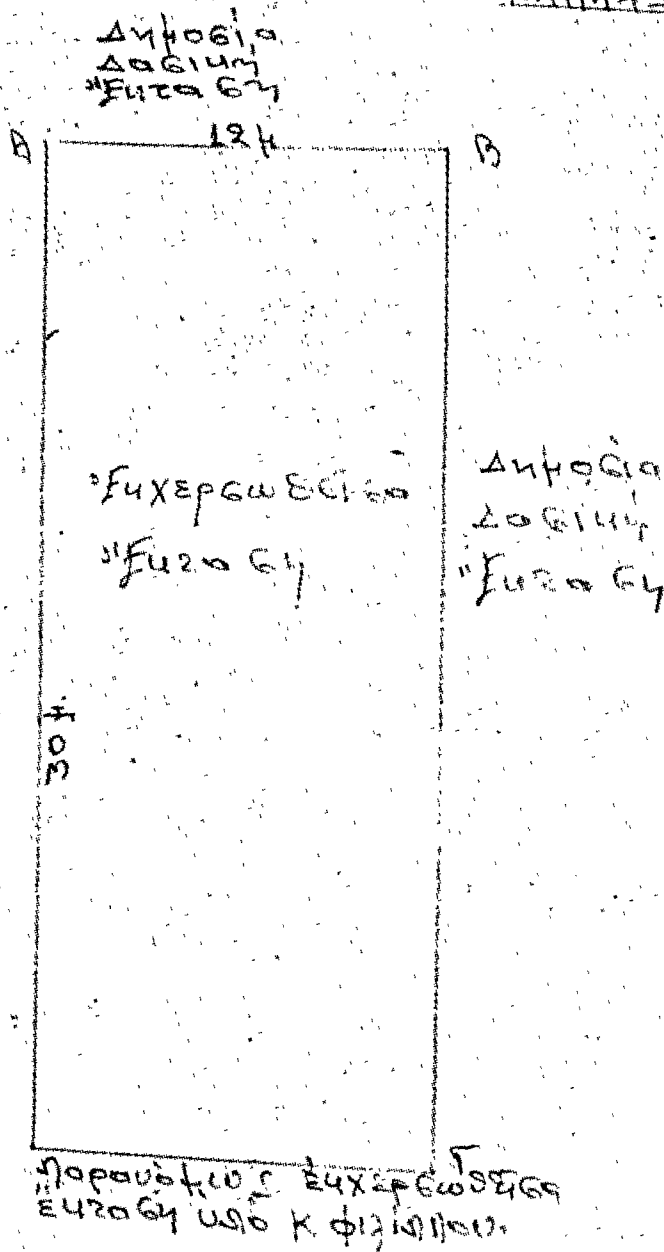 Δημοσία
Δασική
Ἔκταση
12 μ
Α
Β
Ἐκχερσωθεῖσα
Ἔκταση
Δημοσία
Δασική
Ἔκταση
30 μ.
Γ
Παρανόμως ἐκχερσωθεῖσα
ἔκταση ὑπό Κ. Φιλίππου.